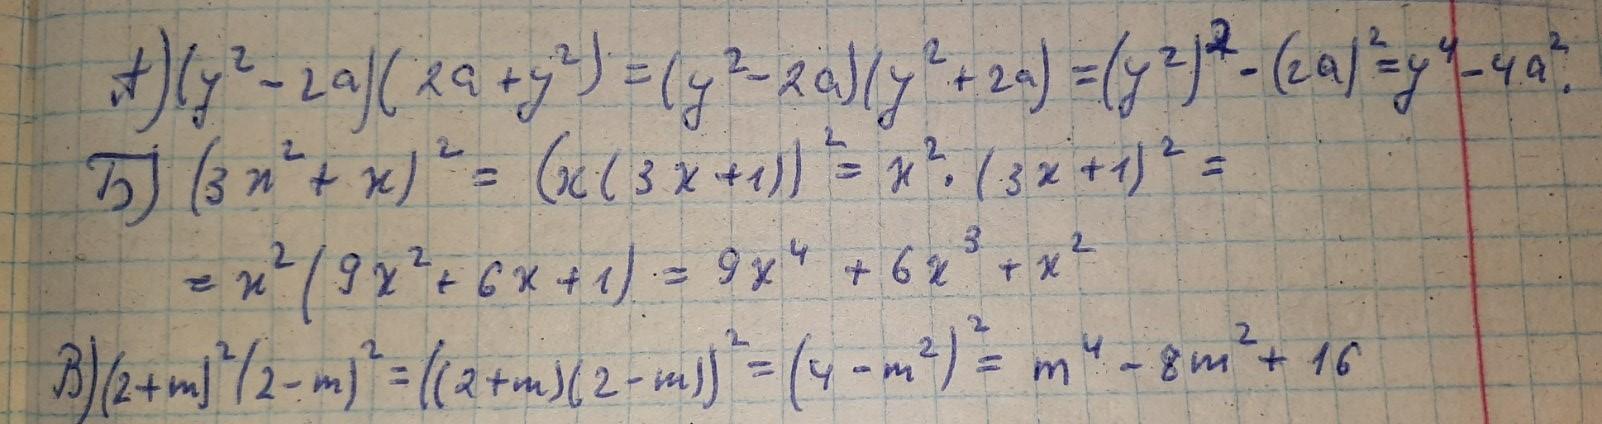 А) (y² - 2a)(2a + y²) = (y² - 2a)(y² + 2a) = (y²)² - (2a)² = y⁴ - 4a².
Б) (3x² + x)² = (x(3x + 1))² = x² · (3x + 1)² =
= x² (9x² + 6x + 1) = 9x⁴ + 6x³ + x²
В) (2 + m)² (2 - m)² = ((2 + m)(2 - m))² = (4 - m²)² = m⁴ - 8m² + 16